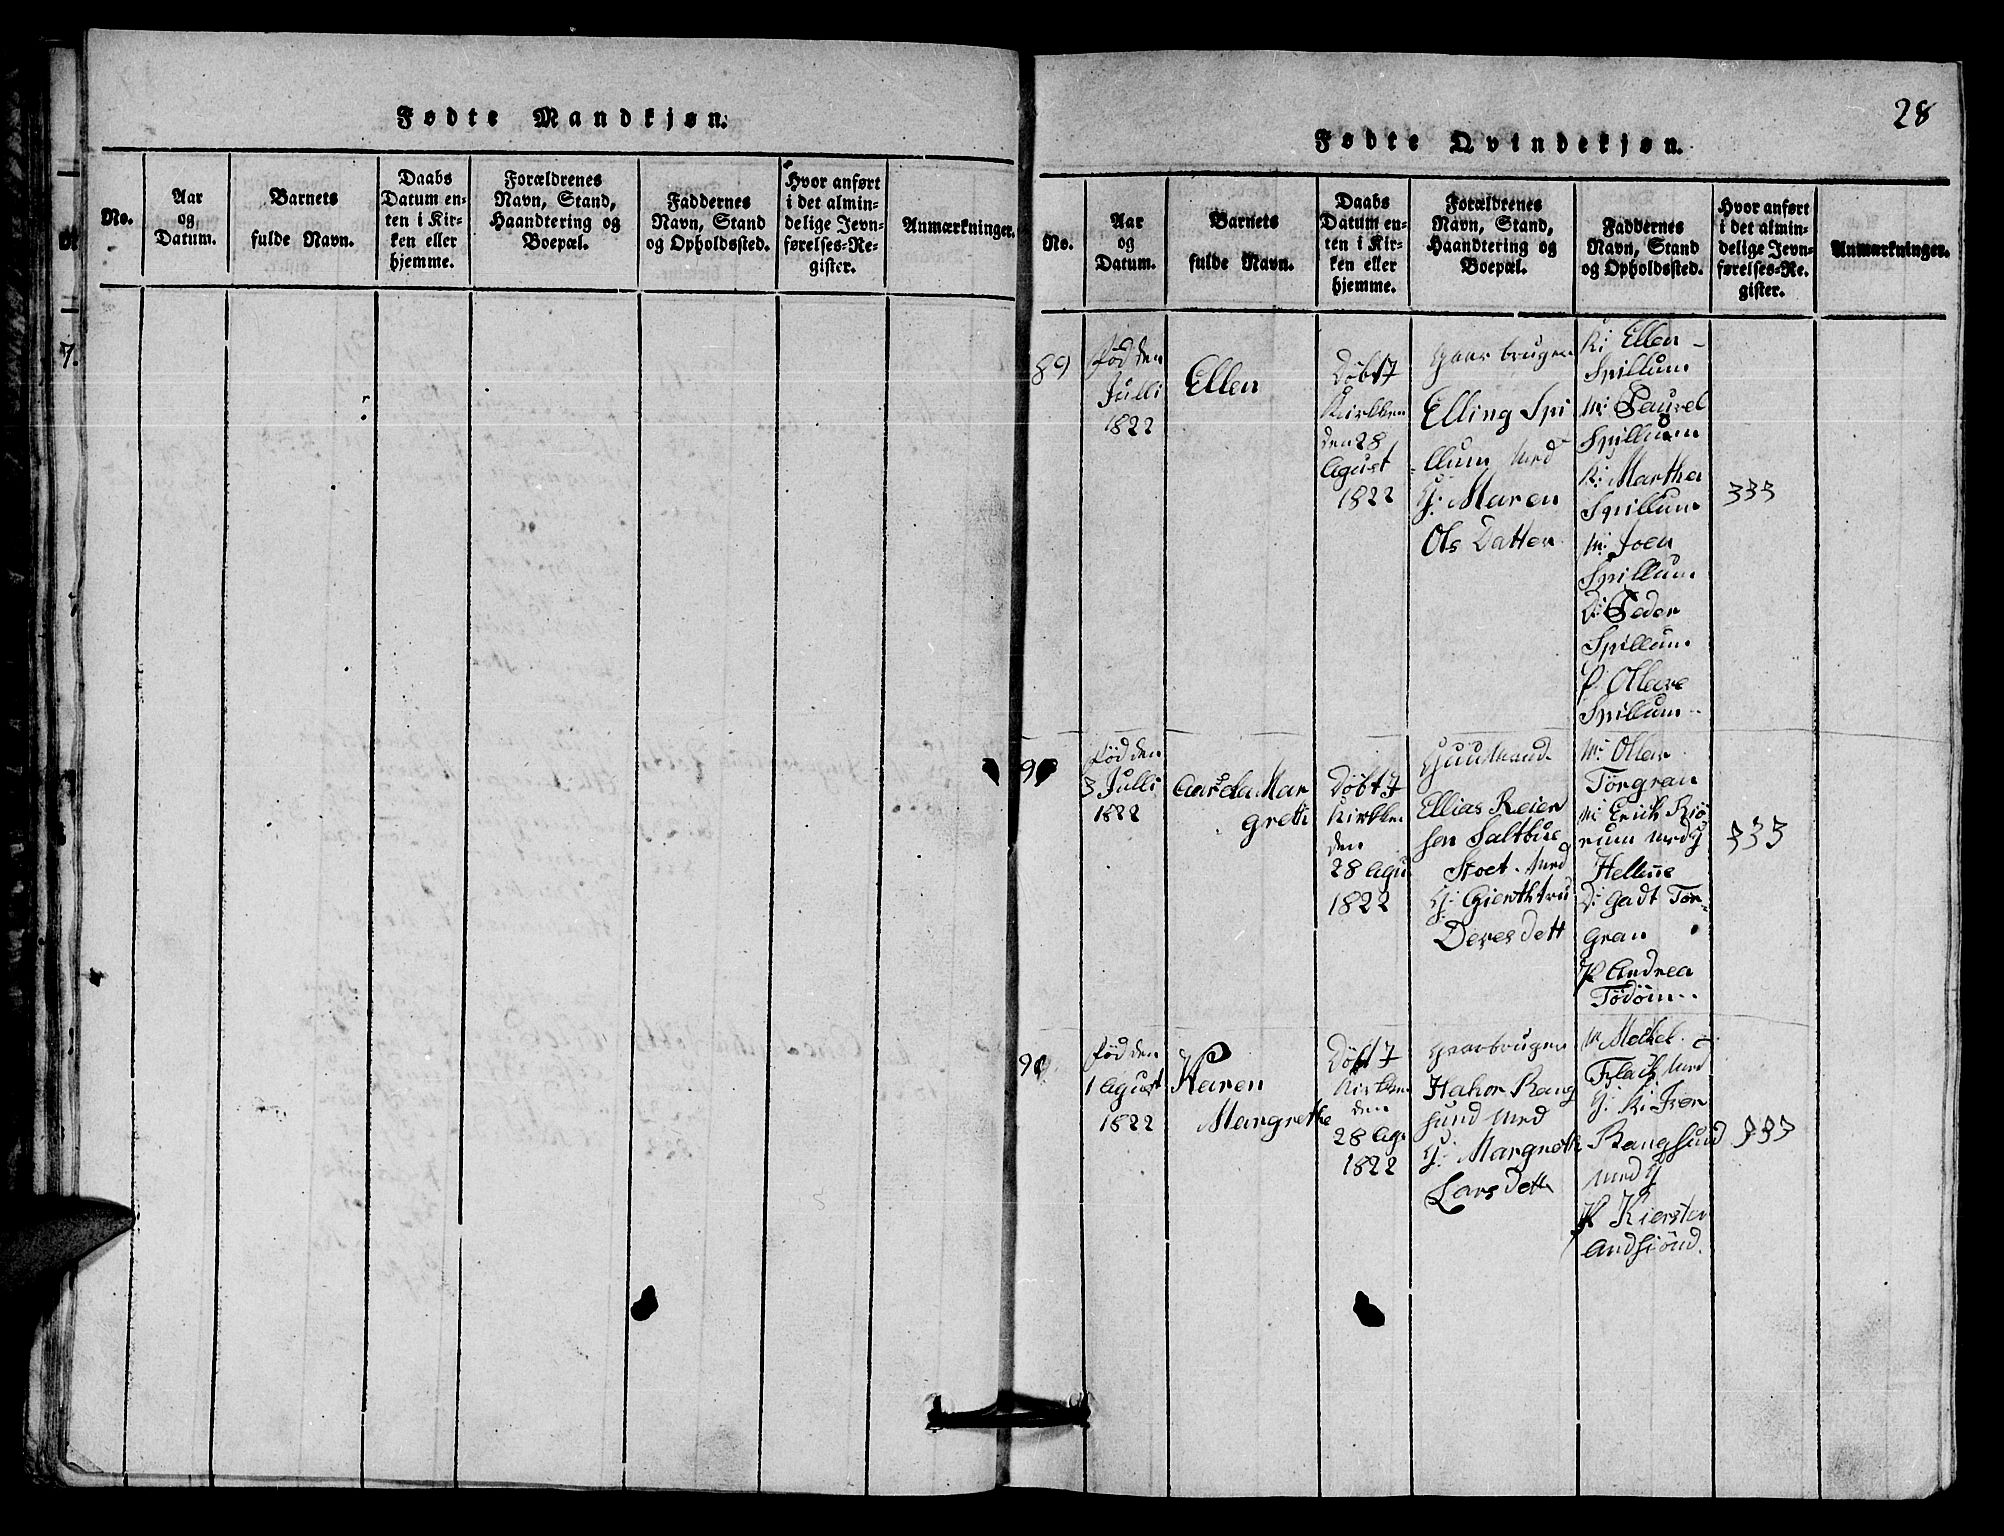 Fødte Mandkjøn.
No.
Aar
og
Datum.
Barnets
fulde Navn.
Daabs
Datum en-
ten i Kir-
ken eller
hjemme.
Forældrenes
Navn, Stand,
Haandtering og
Boepæl.
Faddernes
Navn, Stand
og Opholdssted.
Hvor anført
i det almin-
delige Jevn-
førelses-Re-
gister.
Anmærkninger.
7.
28
Fødte Qvindekjøn.
No.
Aar
og
Datum.
Barnets
fulde Navn.
Daabs
Datum en-
ten i Kir-
ken eller
hjemme.
Forældrenes
Navn, Stand,
Haandtering og
Boepæl.
Faddernes
Navn, Stand
og Opholdssted.
Hvor anført
i det almin-
delige Jevn-
førelses-Re-
gister.
Anmærkninger.
89
fød den
Julli
1822
Ellen
Døbt J
Kirkken
den 28
Agust
1822
Gaarbruger
Elling Spi
llum Med
G: Maren
Ols Datter
Ki Ellen
Spillum
M:
Spillum
Ki Martha
Spillum
M: Joen
Spillum
D: Peder
Spillum
P: Ollava
Spillum
333
fød den
3 Julli
1822
Mar
greth
Døbt J
Kirkken
den
28 Agu
1822
Huusmand
Ellias Reier
sen Saltbue
Med
G:
dett
M: Olleu
Torgran
M: Erich Riø
rum Med G
D: Gadt Tor-
gran
P Andrea
333
fød den
1 Agust
1822
Karen
Margrethe
Døbt J
Kirkken
den
28 Ags
1822
Gaarbruger
Hakor Rang
sund Med
G: Margreth
Lars dett
M
Flach Med
G: Ki Iver
Rangsund
Med G
P Kiersten
Andsiønd.
333